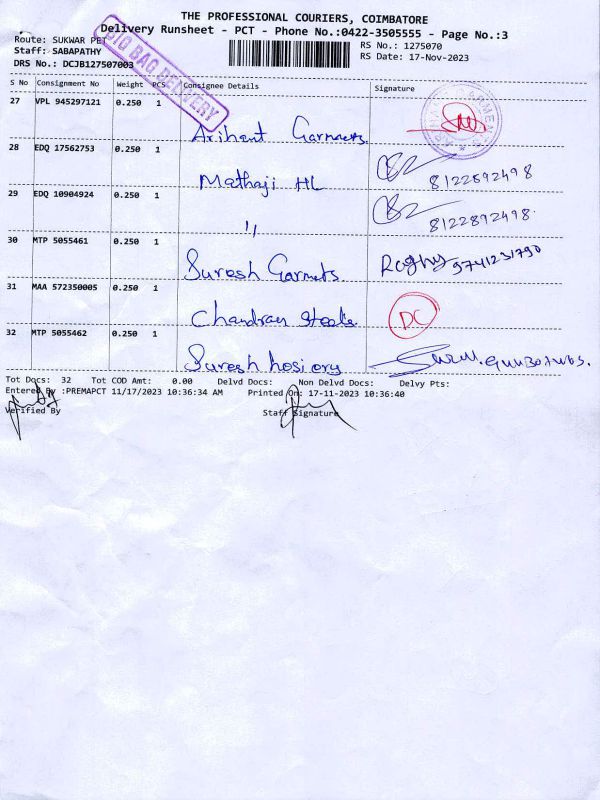 THE PROFESSIONAL COURIERS, COIMBATORE
Delivery Runsheet - PCT - Phone No.:0422-3505555 - Page No.:3
Route: SUKWAR PET
RS No.: 1275070
Staff: SABAPATHY
RS Date: 17-Nov-2023
DRS No.: DCJB127507003
BIG BAG DELIVERY
S No Consignment No Weight PCS Consignee Details Signature
27 VPL 945297121 0.250 1
Arihant Garments
28 EDQ 17562753 0.250 1
Mathaji HL
8122892498
29 EDQ 10904924 0.250 1
"
8122892498
30 MTP 5055461 0.250 1
Suresh Garmets
Raghy 9741231790
31 MAA 572350005 0.250 1
Chandran Steels
DC
32 MTP 5055462 0.250 1
Suresh hosiery
Tot Docs: 32 Tot COD Amt: 0.00 Delvd Docs: Non Delvd Docs: Delvy Pts:
Entered By :PREMAPCT 11/17/2023 10:36:34 AM Printed On: 17-11-2023 10:36:40
Verified By Staff Signature